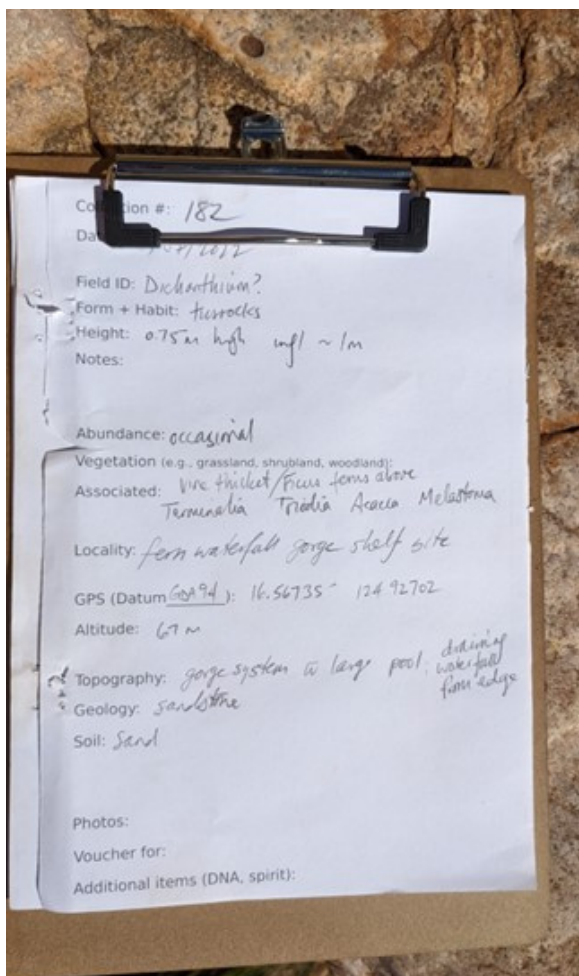 Co tion #: 182
Dat /2022
Field ID: Dichanthium?
Form + Habit: tussocks
Height: 0.75m high infl ~ 1m
Notes:
Abundance: occasional
Vegetation (e.g., grassland, shrubland, woodland):
Associated: vine thicket/Ficus ferns above
Terminalia Triodia Acacia Melastoma
Locality: fern waterfall gorge shelf site
GPS (Datum GDA94): 16.56735 124.92702
Altitude: 67m
Topography: gorge system w large pool; draining
waterfall
from edge
Geology: sandstone
Soil: Sand
Photos:
Voucher for:
Additional items (DNA, spirit):